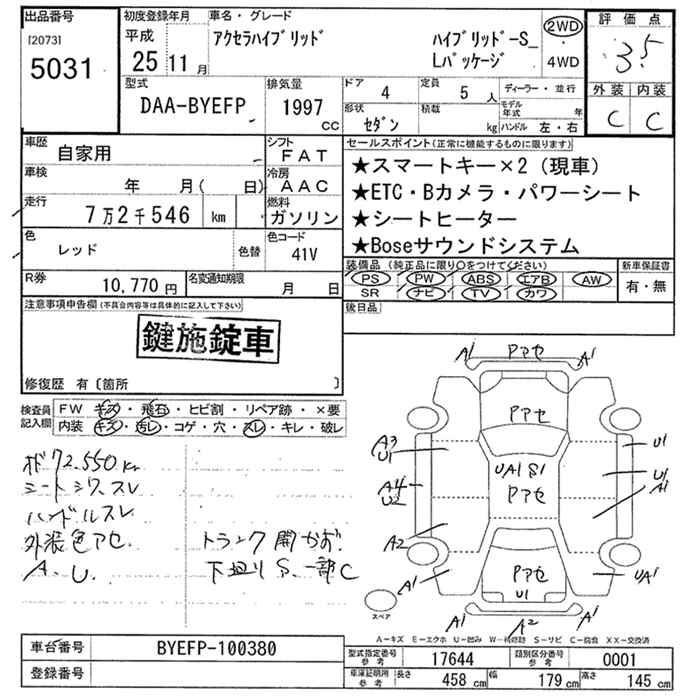 出品番号
[2073]
5031
初度登録年月
平成
25 11 月
車名・グレード
アクセラハイブリッド ハイブリッド-S_
Lパッケージ
2WD
4WD
評価点
3.5
外装 内装
C C
型式
DAA-BYEFP
排気量
1997
cc
ドア 4
定員 5 人
形状
セダン
積載
kg
ディーラー・並行
モデル年式 年
ハンドル 左・右
車歴
自家用
シフト
FAT
車検
年 月( 日)
冷房
AAC
走行
7万2千546 km
燃料
ガソリン
色
レッド
色替
色コード
41V
R券
10,770円
名変通知期限
月 日
セールスポイント(正常に機能するものに限ります)
★スマートキー×2(現車)
★ETC・Bカメラ・パワーシート
★シートヒーター
★Boseサウンドシステム
装備品(純正品に限り○をつけてください)
PS PW ABS エアB AW
SR ナビ TV カワ
新車保証書
有・無
後日品
注意事項申告欄(不具合内容等は具体的に記入して下さい)
鍵施錠車
修復歴 有〔箇所 〕
検査員記入欄
FW キズ・飛石・ヒビ割・リペア跡・×要
内装 キズ・汚レ・コゲ・穴・スレ・キレ・破レ
72,550km
シートシワ、スレ
ハンドルスレ
外装色アセ.
A. U.
トランク開
下廻りS. 一部C
A1 アセ A1
アセ
A3
U1
UA1 S1
アセ
U1
A4
U2
U1
A1
A2
A1
アセ
U1
UA1
A1 A2 A1
スペア
A-キズ E-エクボ U-凹み W-補修跡 S-サビ C-腐食 XX-交換済
車台番号
BYEFP-100380
登録番号
型式指定番号
参考
17644
類別区分番号
参考
0001
車庫証明用
参考
長さ 458 cm 幅 179 cm 高さ 145 cm